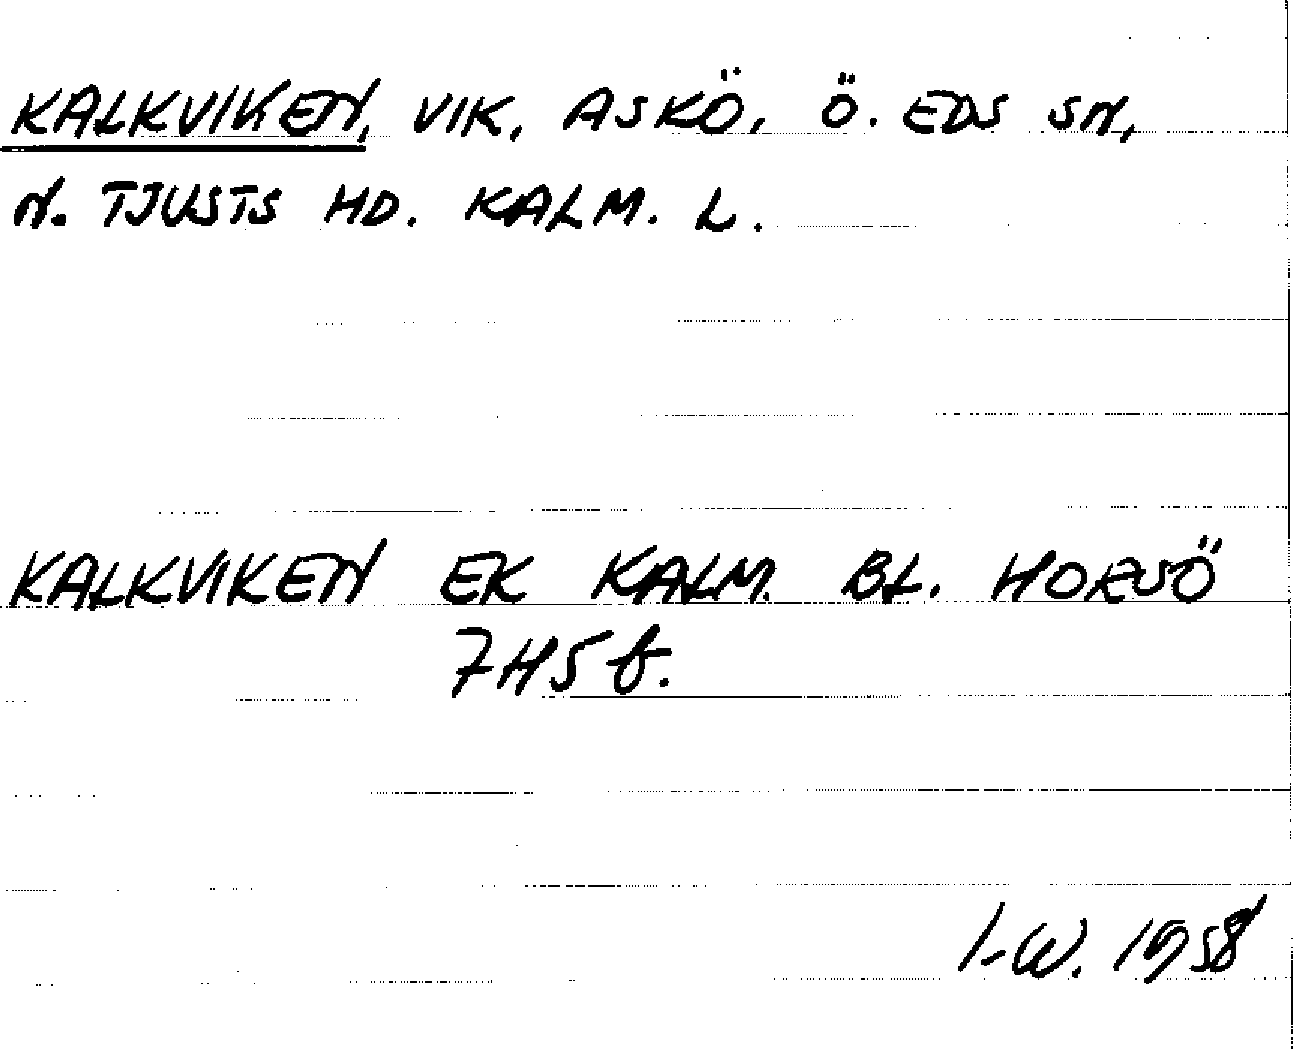 KALKVIKEN, VIK, ASKÖ, Ö. EDS SN,
N. TJUSTS HD. KALM. L.
KALKVIKEN EK KALM. BL. HORSÖ
7H5f.
I-W. 1958